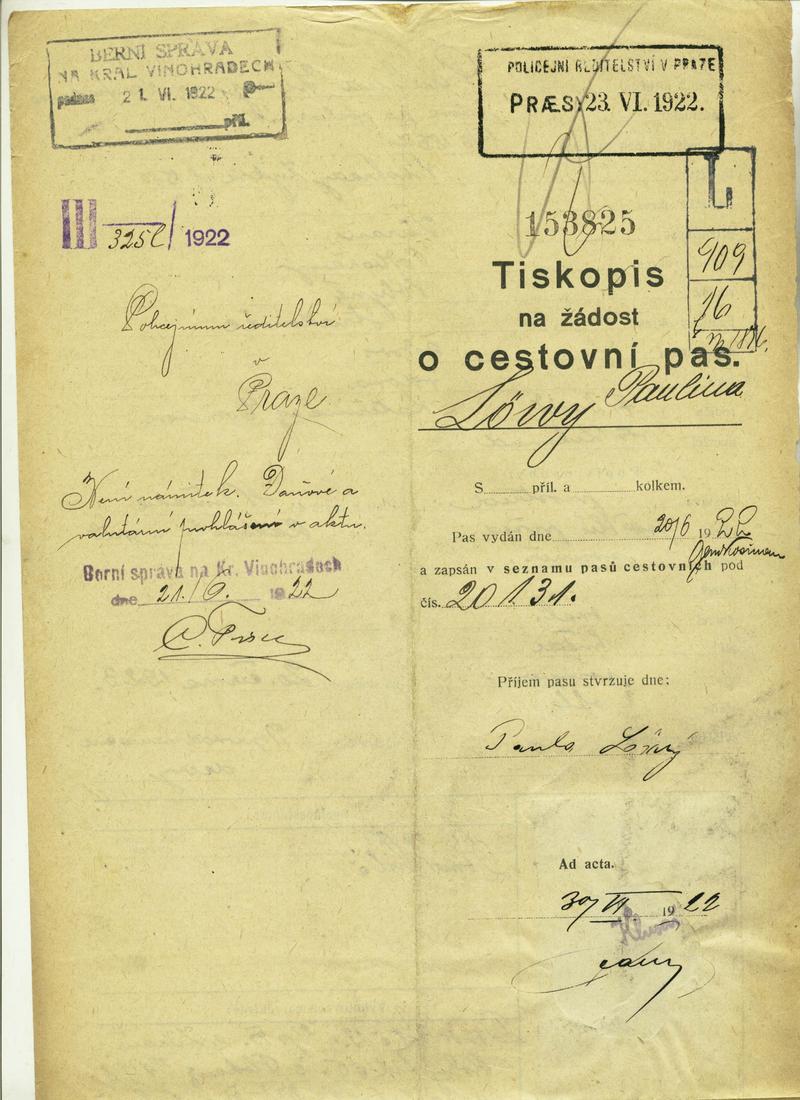 BERNÍ SPRÁVA
NA KRÁL. VINOHRADECH
podáno 21. VI. 1922
příl.
III 325 / 1922
Policejnímu ředitelství
v
Praze
Není námitek. Daňové a
valutární prohlášení v aktu.
Berní správa na Kr. Vinohradech
dne 21./6. 1922
POLICEJNÍ ŘEDITELSTVÍ V PRAZE
PRÆS. 23. VI. 1922.
153825
L
909
16
Tiskopis
na žádost
o cestovní pas.
Löwy Paulina
S příl. a kolkem.
Pas vydán dne 20/6 1922
a zapsán v seznamu pasů cestovních pod
čís. 20131.
Příjem pasu stvrzuje dne:
Paula Löwy
Ad acta.
30/VI 1922